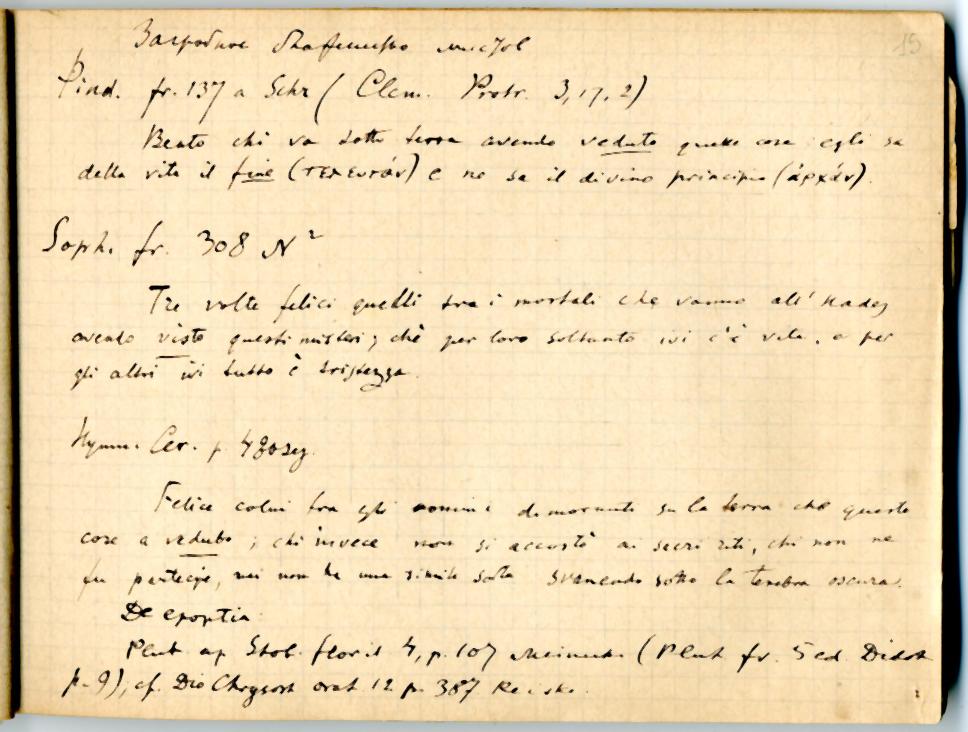 Загробное блаженство мистов
15
Pind. fr. 137 a Schr ( Clem. Protr. 3, 17, 2)
Beato chi va sotto terra avendo veduto queste cose: egli sa
della vita il fine (τελευτάν) e ne sa il divino principio (ἀρχάν).
Soph. fr. 308 N²
Tre volte felici quelli tra i mortali che vanno all' Hades
avendo visto questi misteri; chè per loro soltanto ivi c'è vita, e per
gli altri ivi tutto è tristezza.
Hymn. Cer. 480sg.
Felice colui tra gli uomini dimoranti su la terra che queste
cose a veduto; chi invece non si accostò ai sacri riti, chi non ne
fu partecipe, mai non ha una simile sorte svanendo sotto la tenebra oscura.
De epoptia
Plut ap Stob. floril 4, p. 107 Meineke (Plut fr. 5 ed. Didot
p. 9); cf. Dio Chrysost orat 12 p. 387 Reiske.